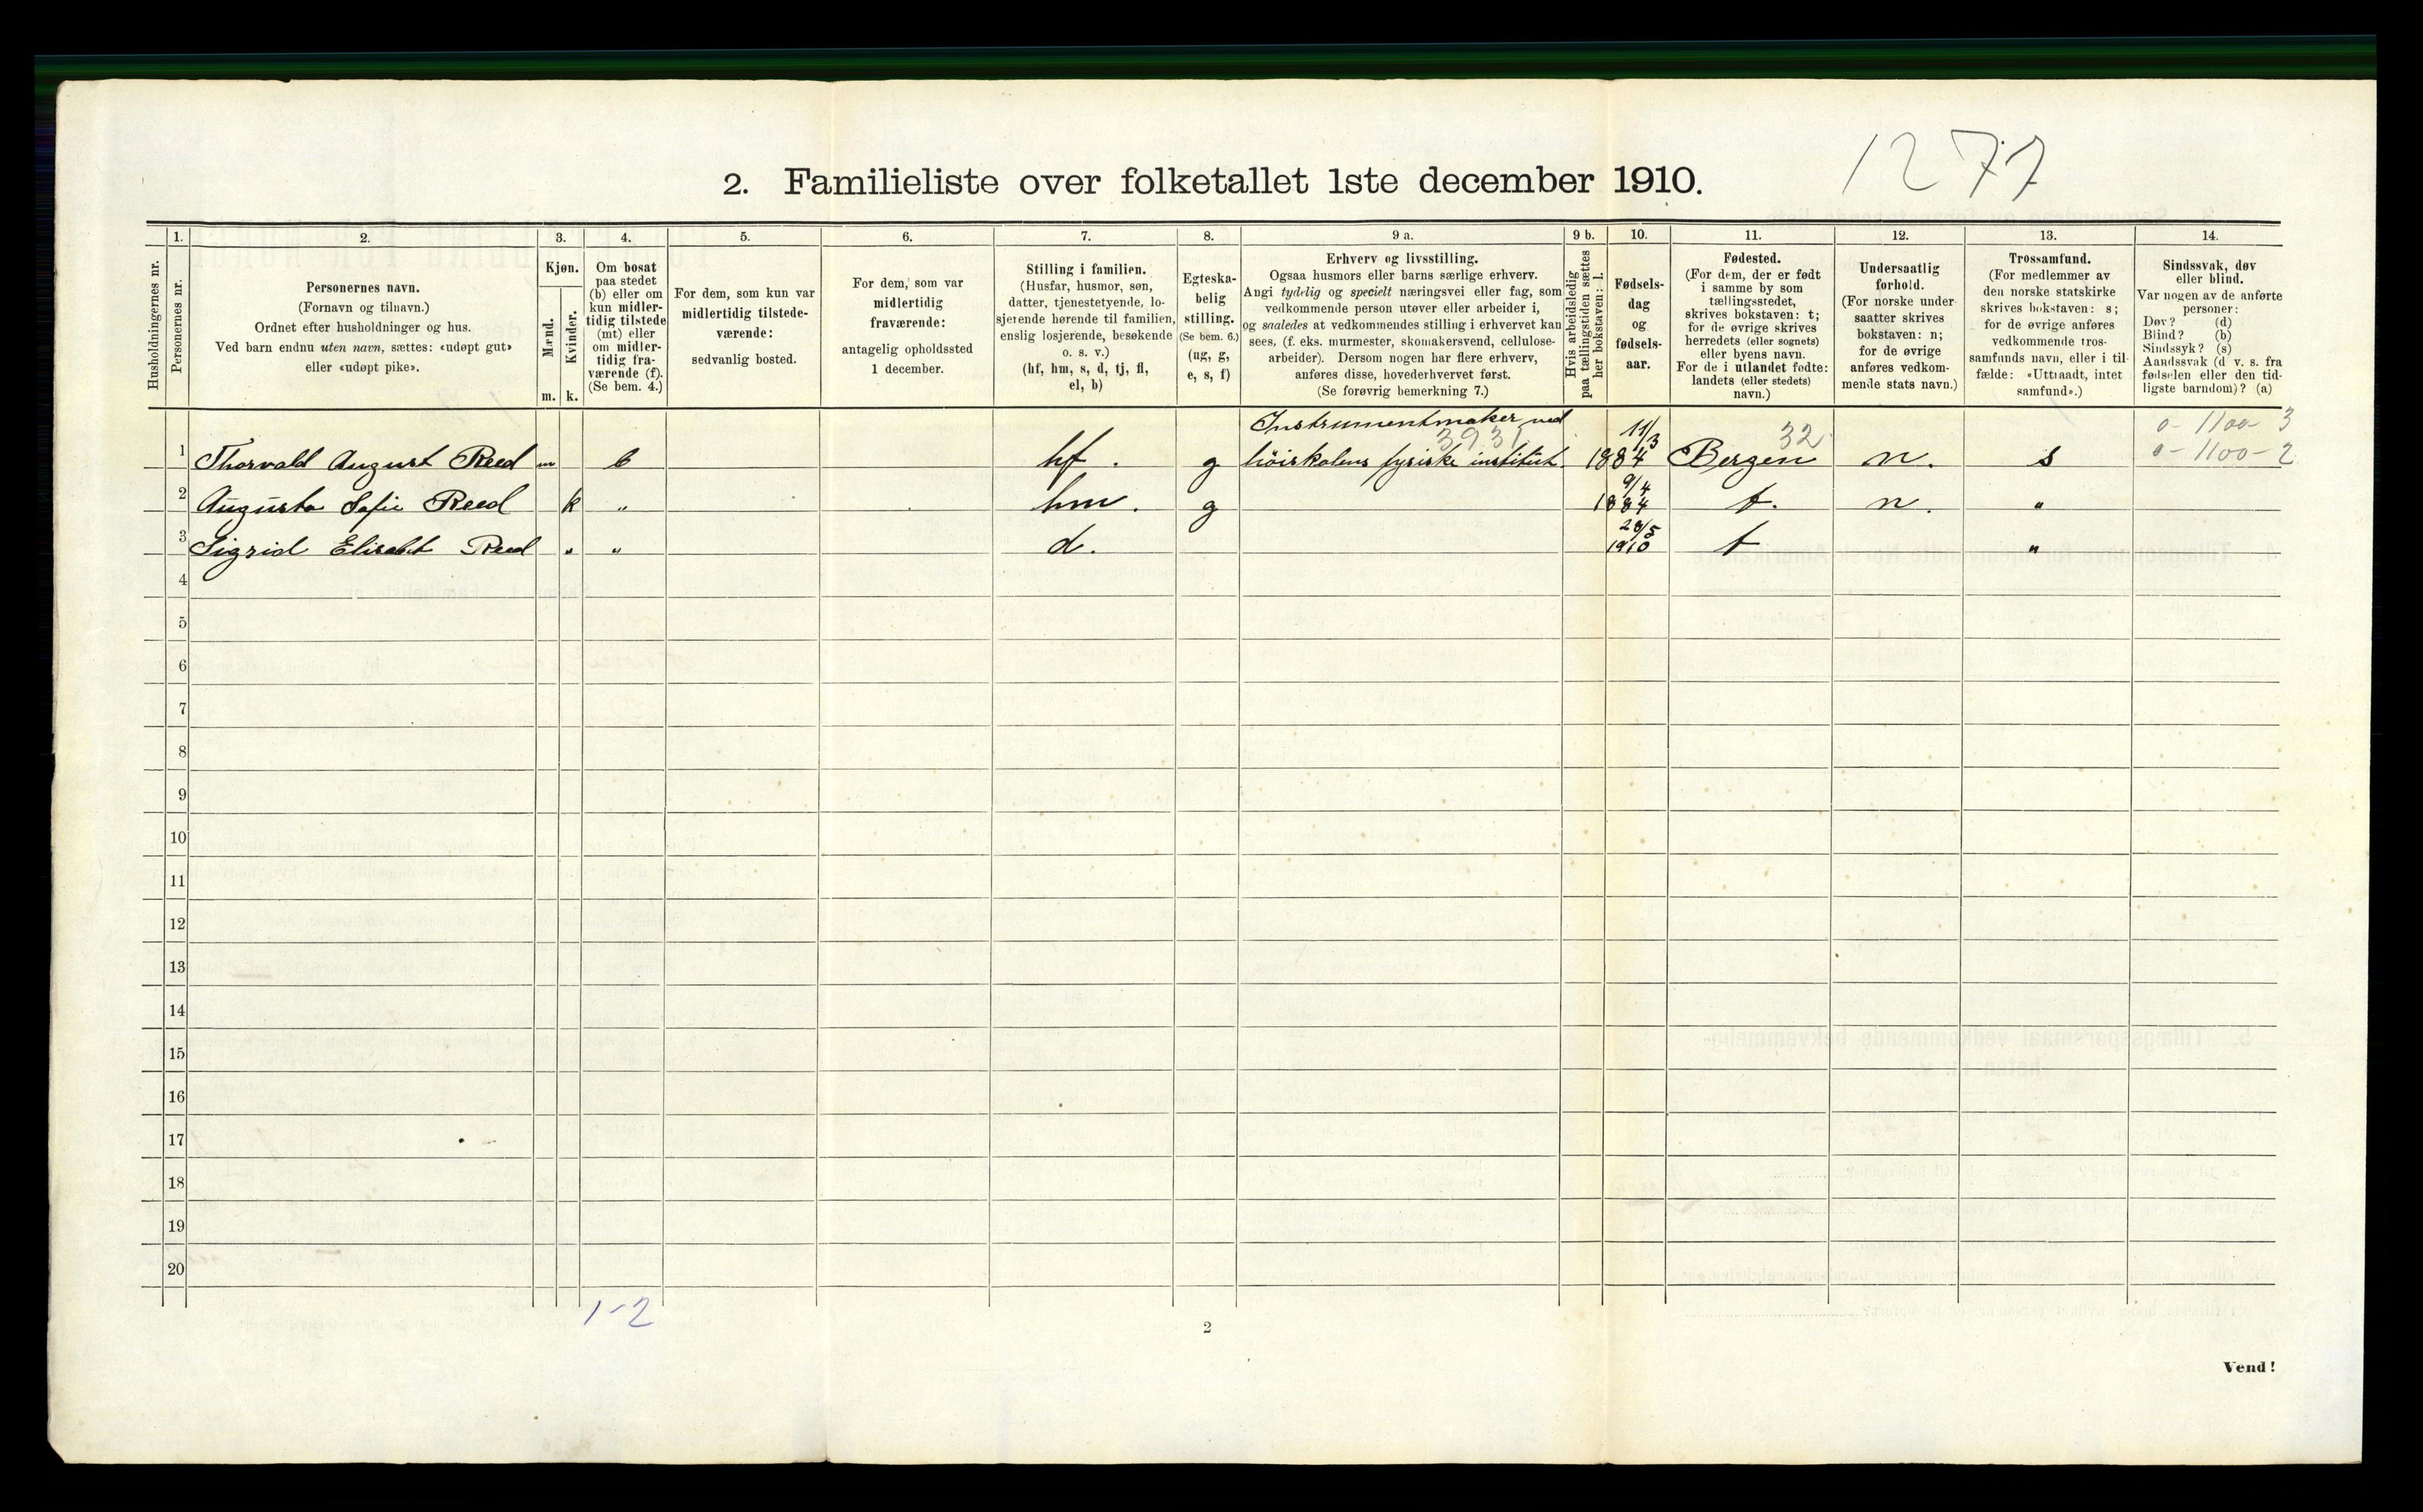 1277
2. Familieliste over folketallet 1ste december 1910.
Husholdningernes nr.
1.
Personernes nr.
2.
Personernes navn.
(Fornavn og tilnavn.)
Ordnet efter husholdninger og hus.
Ved barn endnu uten navn, sættes: «udøpt gut»
eller «udøpt pike».
3.
Kjøn.
Mænd.
Kvinder.
m. k.
4.
Om bosat
paa stedet
(b) eller om
kun midler-
tidig tilstede
(mt) eller
om midler-
tidig fra-
værende (f).
(Se bem. 4.)
5.
For dem, som kun var
midlertidig tilstede-
værende:
sedvanlig bosted.
6.
For dem, som var
midlertidig
fraværende:
antagelig opholdssted
1 december.
7.
Stilling i familien.
(Husfar, husmor, søn,
datter, tjenestetyende, lo-
sjerende hørende til familien,
enslig losjerende, besøkende
o. s. v.)
(hf, hm, s, d, tj, fl,
el, b)
8.
Egteska-
belig
stilling.
(Se bem. 6.)
(ug, g,
e, s, f)
9 a.
Erhverv og livsstilling.
Ogsaa husmors eller barns særlige erhverv.
Angi tydelig og specielt næringsvei eller fag, som
vedkommende person utøver eller arbeider i,
og saaledes at vedkommendes stilling i erhvervet kan
sees, (f. eks. murmester, skomakersvend, cellulose-
arbeider). Dersom nogen har flere erhverv,
anføres disse, hovederhvervet først.
(Se forøvrig bemerkning 7.)
9 b.
Hvis arbeidsledig
paa tællingstiden sættes
her bokstaven: l.
10.
Fødsels-
dag
og
fødsels-
aar.
11.
Fødested.
(For dem, der er født
i samme by som
tællingsstedet,
skrives bokstaven: t;
for de øvrige skrives
herredets (eller sognets)
eller byens navn.
For de i utlandet fødte:
landets (eller stedets)
navn.)
12.
Undersaatlig
forhold.
(For norske under-
saatter skrives
bokstaven: n;
for de øvrige
anføres vedkom-
mende stats navn.)
13.
Trossamfund.
(For medlemmer av
den norske statskirke
skrives bokstaven: s;
for de øvrige anføres
vedkommende tros-
samfunds navn, eller i til-
fælde: «Uttraadt, intet
samfund».)
14.
Sindssvak, døv
eller blind.
Var nogen av de anførte
personer:
Døv? (d)
Blind? (b)
Sindssyk? (s)
Aandssvak (d. v. s. fra
fødselen eller den tid-
ligste barndom)? (a)
Instrumentmaker ved 11/3 0-1100-3
3931 32
1 Thorvald August Reed m b hf. g höiskolens fysiske institut. 1884 Bergen n. s 0-1100-2
9/4
2 Augusta Sofie Reed k " hm. g 1884 t. n. "
28/5
3 Sigrid Elisabet Reed " " d. 1910 t "
4
5
6
7
8
9
10
11
12
13
14
15
16
17
18
19
20
1-2
2
Vend!